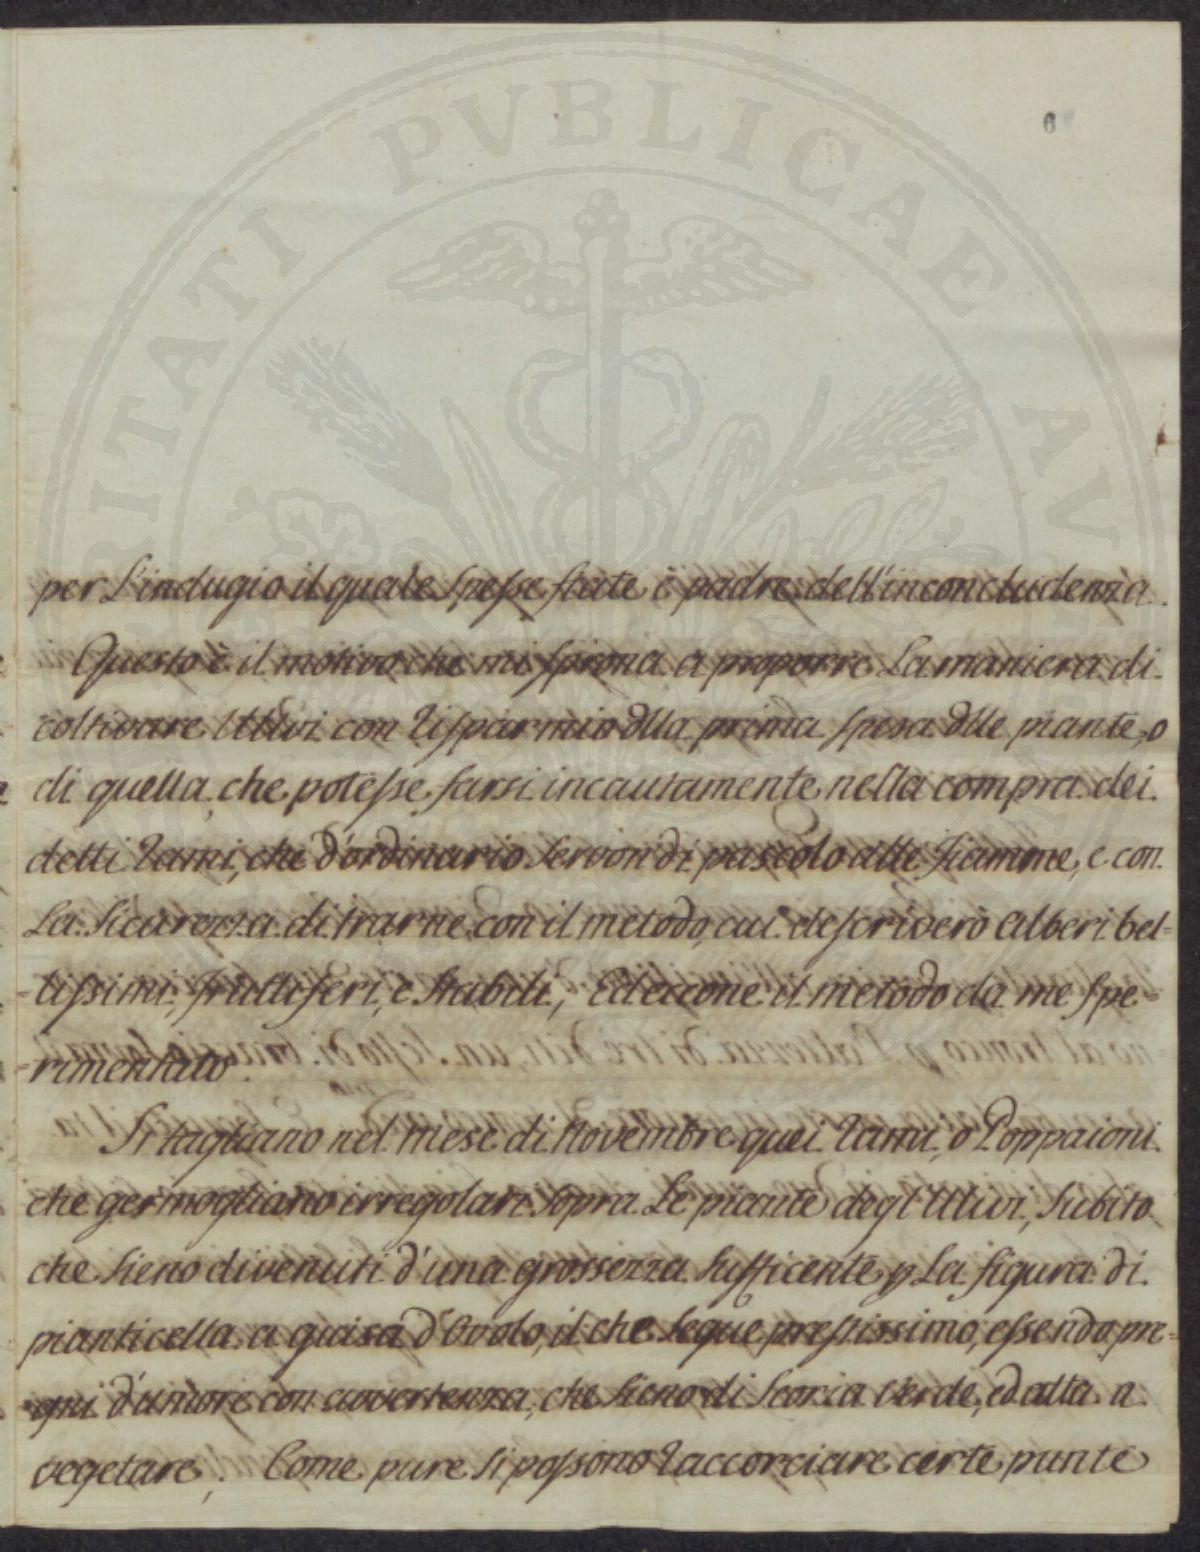 PROSPERITATI PVBLICAE AV
6
per l'indugio il quale spesse fiate è padre dell'inconcludenza.
Questo è il motivo che mi sprona a proporre la maniera di
coltivare Ulivi con risparmio dlla prima spesa dlle piante, o
di quella, che potesse farsi incautamente nella compra dei
detti rami, che d'ordinario servon di pascolo alle fiamme, e con
la sicurezza di trarne con il metodo, cui descriverò alberi bel=
=lissimi, fruttiferi, e stabili, Ed eccone il metodo da me spe=
=rimentato.
Si tagliano nel mese di Novembre quei rami, o Poppaioni
che germogliano irregolari sopra le piante degl'Ulivi, subito
che sieno divenuti d'una grossezza sufficente p la figura di
pianticella a guisa d'Ovolo, il che segue prestissimo, essendo pre=
gni d'umore con avvertenza, che sieno di scorza verde, ed atta a
vegetare, Come pure si possono raccorciare certe punte